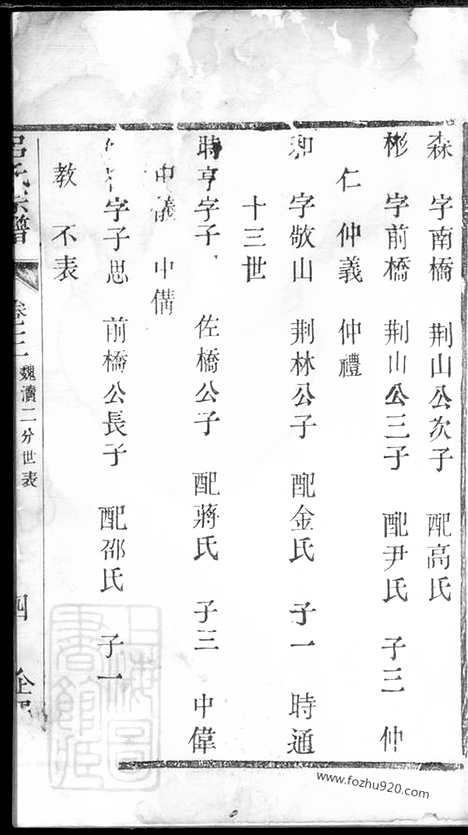 森 字南橋 荆山公次子 配高氏
彬 字前橋 荆山公三子 配尹氏 子三 仲
仁 仲義 仲禮
和 字敬山 荆林公子 配金氏 子一 時通
十三世
時亨 字子 佐橋公子 配蔣氏 子三 中偉
中儀 中備
字子思 前橋公長子 配邵氏 子一
教 不表
呂氏宗譜 卷二 魏瀆二分世表 四
上海圖書館藏
www.fozhu920.com